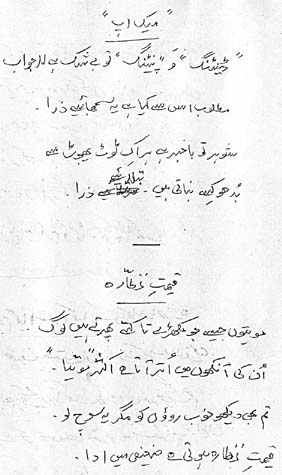 "میک اپ"
"ڈینٹنگ" و "پینٹنگ" تو بے شک ہے لاجواب
مطلب اس سے کیا ہے یہ سمجھائیے ذرا۔
شوہر تو باخبر ہے ہر اک ٹوٹ پھوٹ سے
بُدھو کسے بناتی ہیں۔ بتلائیے ذرا۔
قیمتِ نظارہ
موتیوں جیسے جو مکھڑے تاکتے پھرتے ہیں لوگ
اُن کی آنکھوں میں اُتر آتا ہے اکثر "موتیا"۔
تم بھی دیکھو خوب روؤں کو مگر یہ سوچ لو۔
قیمتِ نظارہ ہوتی ہے ضعیفی میں ادا۔